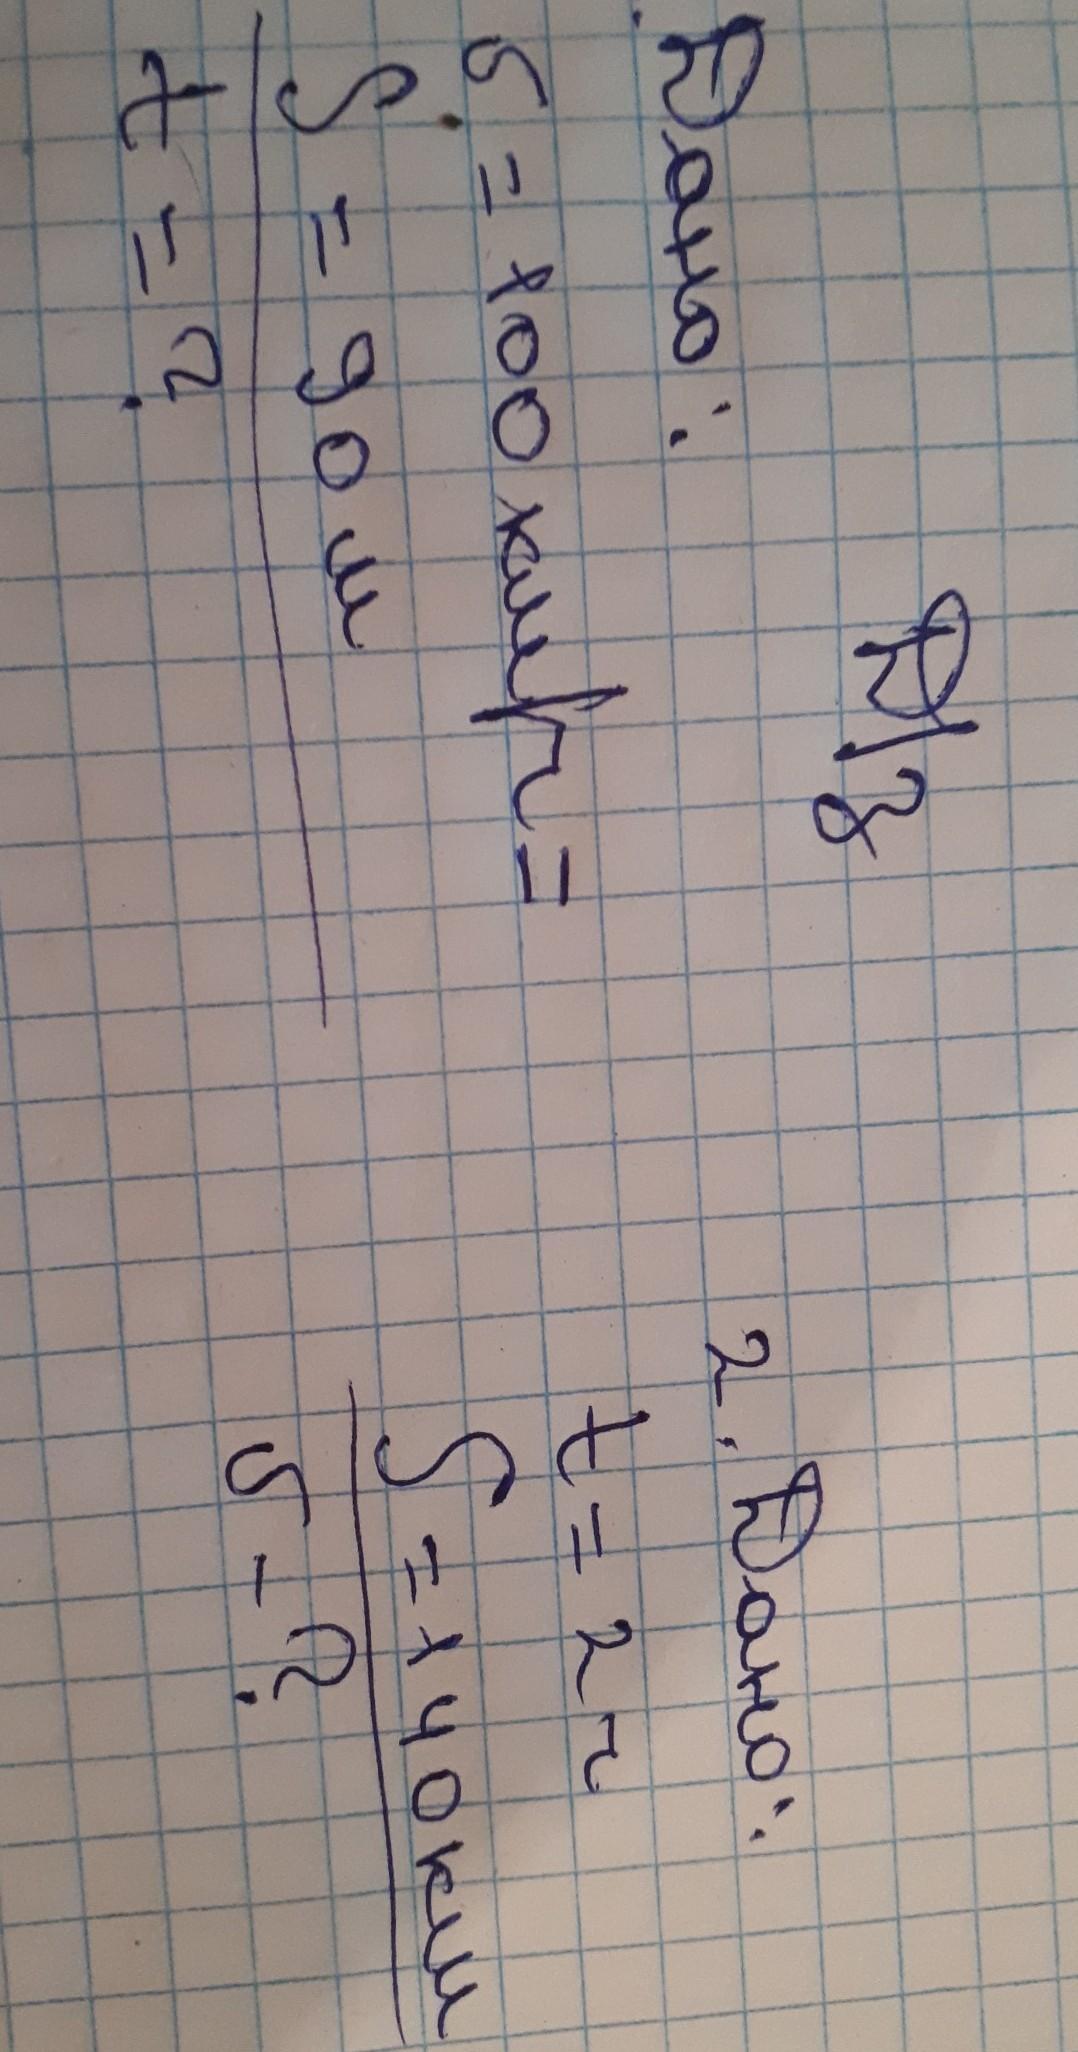 Д/з
Дано:
υ = 100 км/ч =
S = 90 м
t = ?
2. Дано:
t = 2 ч
S = 140 км
υ - ?